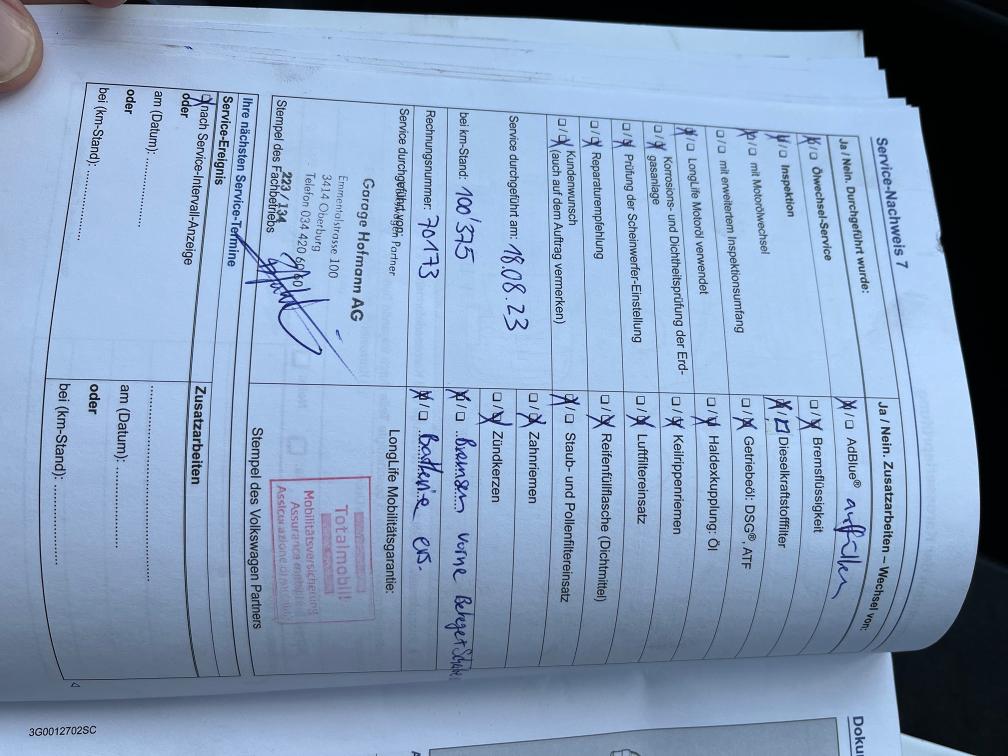 Service-Nachweis 7
Ja / Nein. Durchgeführt wurde:
☒/☐ Ölwechsel-Service
☒/☐ Inspektion
☒/☐ mit Motorölwechsel
☐/☐ mit erweitertem Inspektionsumfang
☒/☐ LongLife Motoröl verwendet
☐/☒ Korrosions- und Dichtheitsprüfung der Erd-
gasanlage
☐/☒ Prüfung der Scheinwerfer-Einstellung
☐/☒ Reparaturempfehlung
☐/☒ Kundenwunsch
(auch auf dem Auftrag vermerken)
Service durchgeführt am: 18.08.23
bei km-Stand: 100'375
Rechnungsnummer: 70173
Service durchgeführt von:
Partner
Garage Hofmann AG
Emmentalstrasse 100
3414 Oberburg
Telefon 034 420 60 60
223/134
Stempel des Fachbetriebs
Ja / Nein. Zusatzarbeiten – Wechsel von:
☒/☐ AdBlue® auffüllen
☐/☒ Bremsflüssigkeit
☒/☐ Dieselkraftstofffilter
☐/☒ Getriebeöl: DSG®, ATF
☐/☒ Haldexkupplung: Öl
☐/☒ Keilrippenriemen
☐/☒ Luftfiltereinsatz
☐/☒ Reifenfüllflasche (Dichtmittel)
☒/☐ Staub- und Pollenfiltereinsatz
☐/☒ Zahnriemen
☐/☒ Zündkerzen
☒/☐ Bremsen vorne Beläge +
☒/☐ Batterie ers.
LongLife Mobilitätsgarantie:
Totalmobil!
Mobilitätsversicherung
Assurance
Assicurazione di
Stempel des Volkswagen Partners
Ihre nächsten Service-Termine
Service-Ereignis
☒ nach Service-Intervall-Anzeige
oder
am (Datum):
oder
bei (km-Stand):
Zusatzarbeiten
am (Datum):
oder
bei (km-Stand):
3G0012702SC